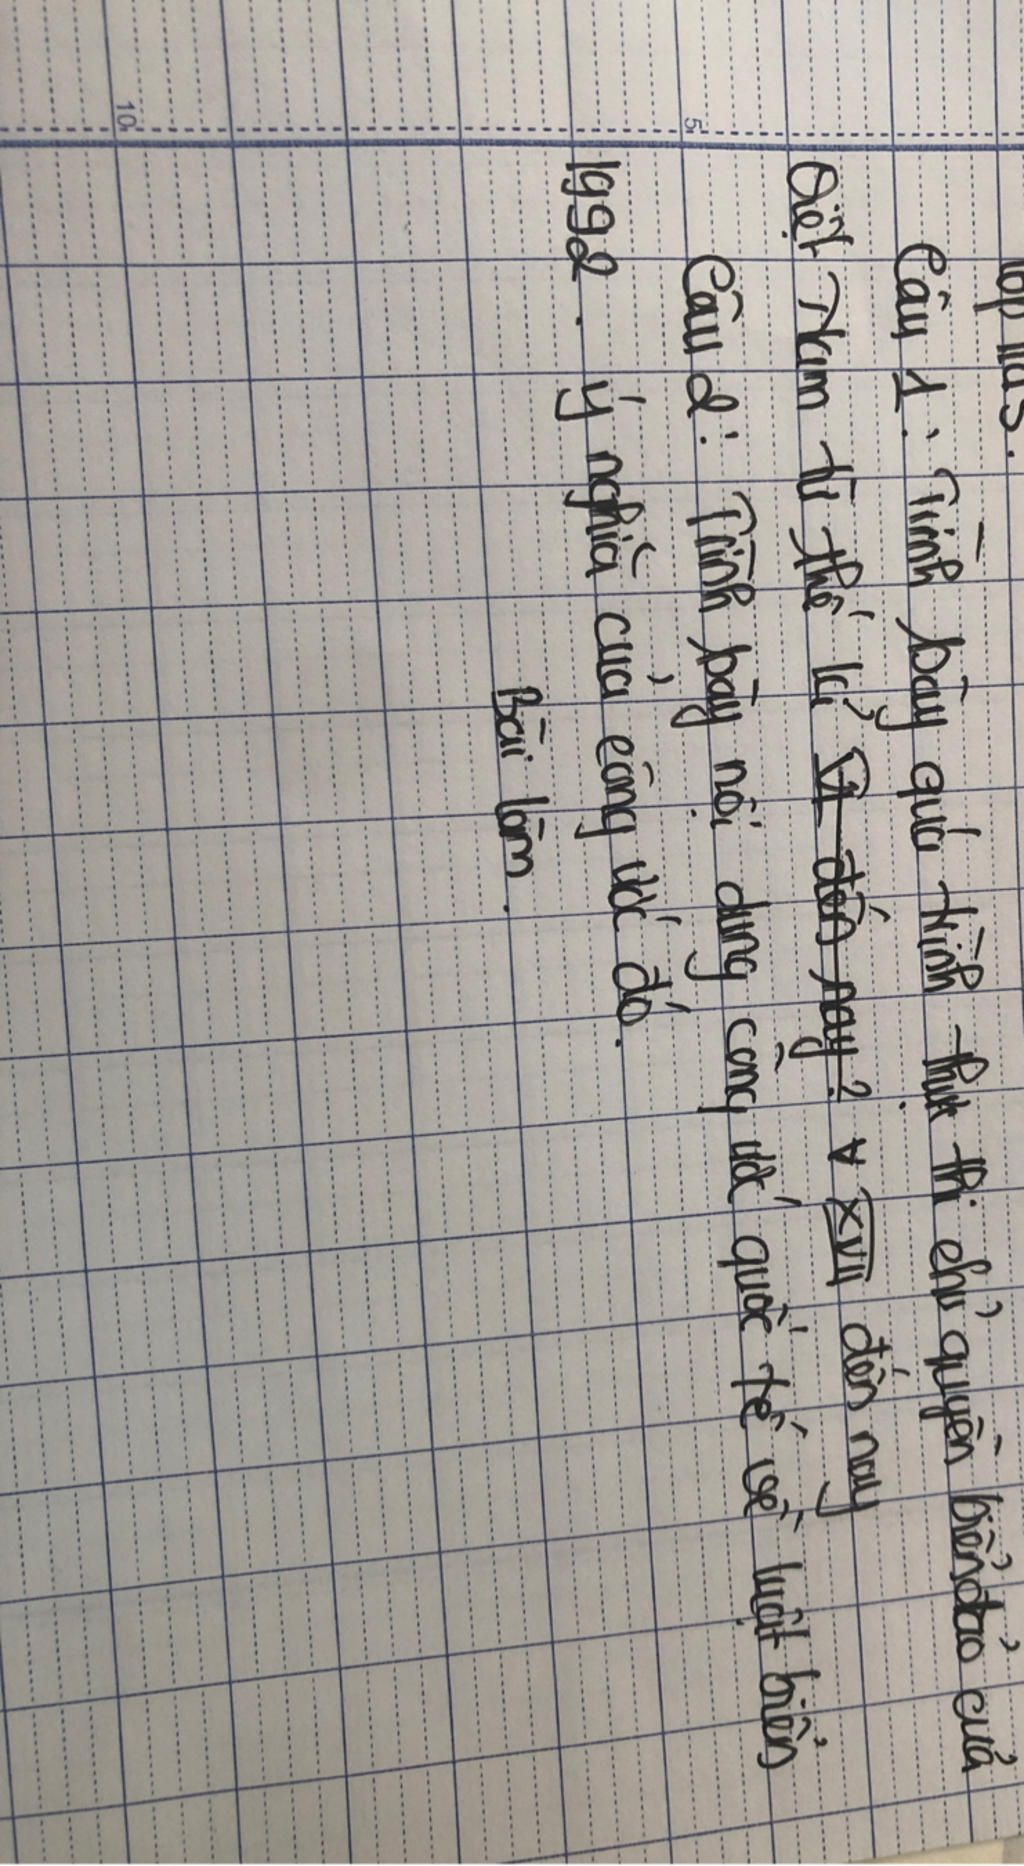 Câu 1: Trình bày quá trình thực thi chủ quyền biển đảo của
Việt Nam từ thế kỉ VI đến nay? XVII đến nay
Câu 2: Trình bày nội dung công ước quốc tế về luật biển
1992. ý nghĩa của công ước đó.
Bài làm.
5
10